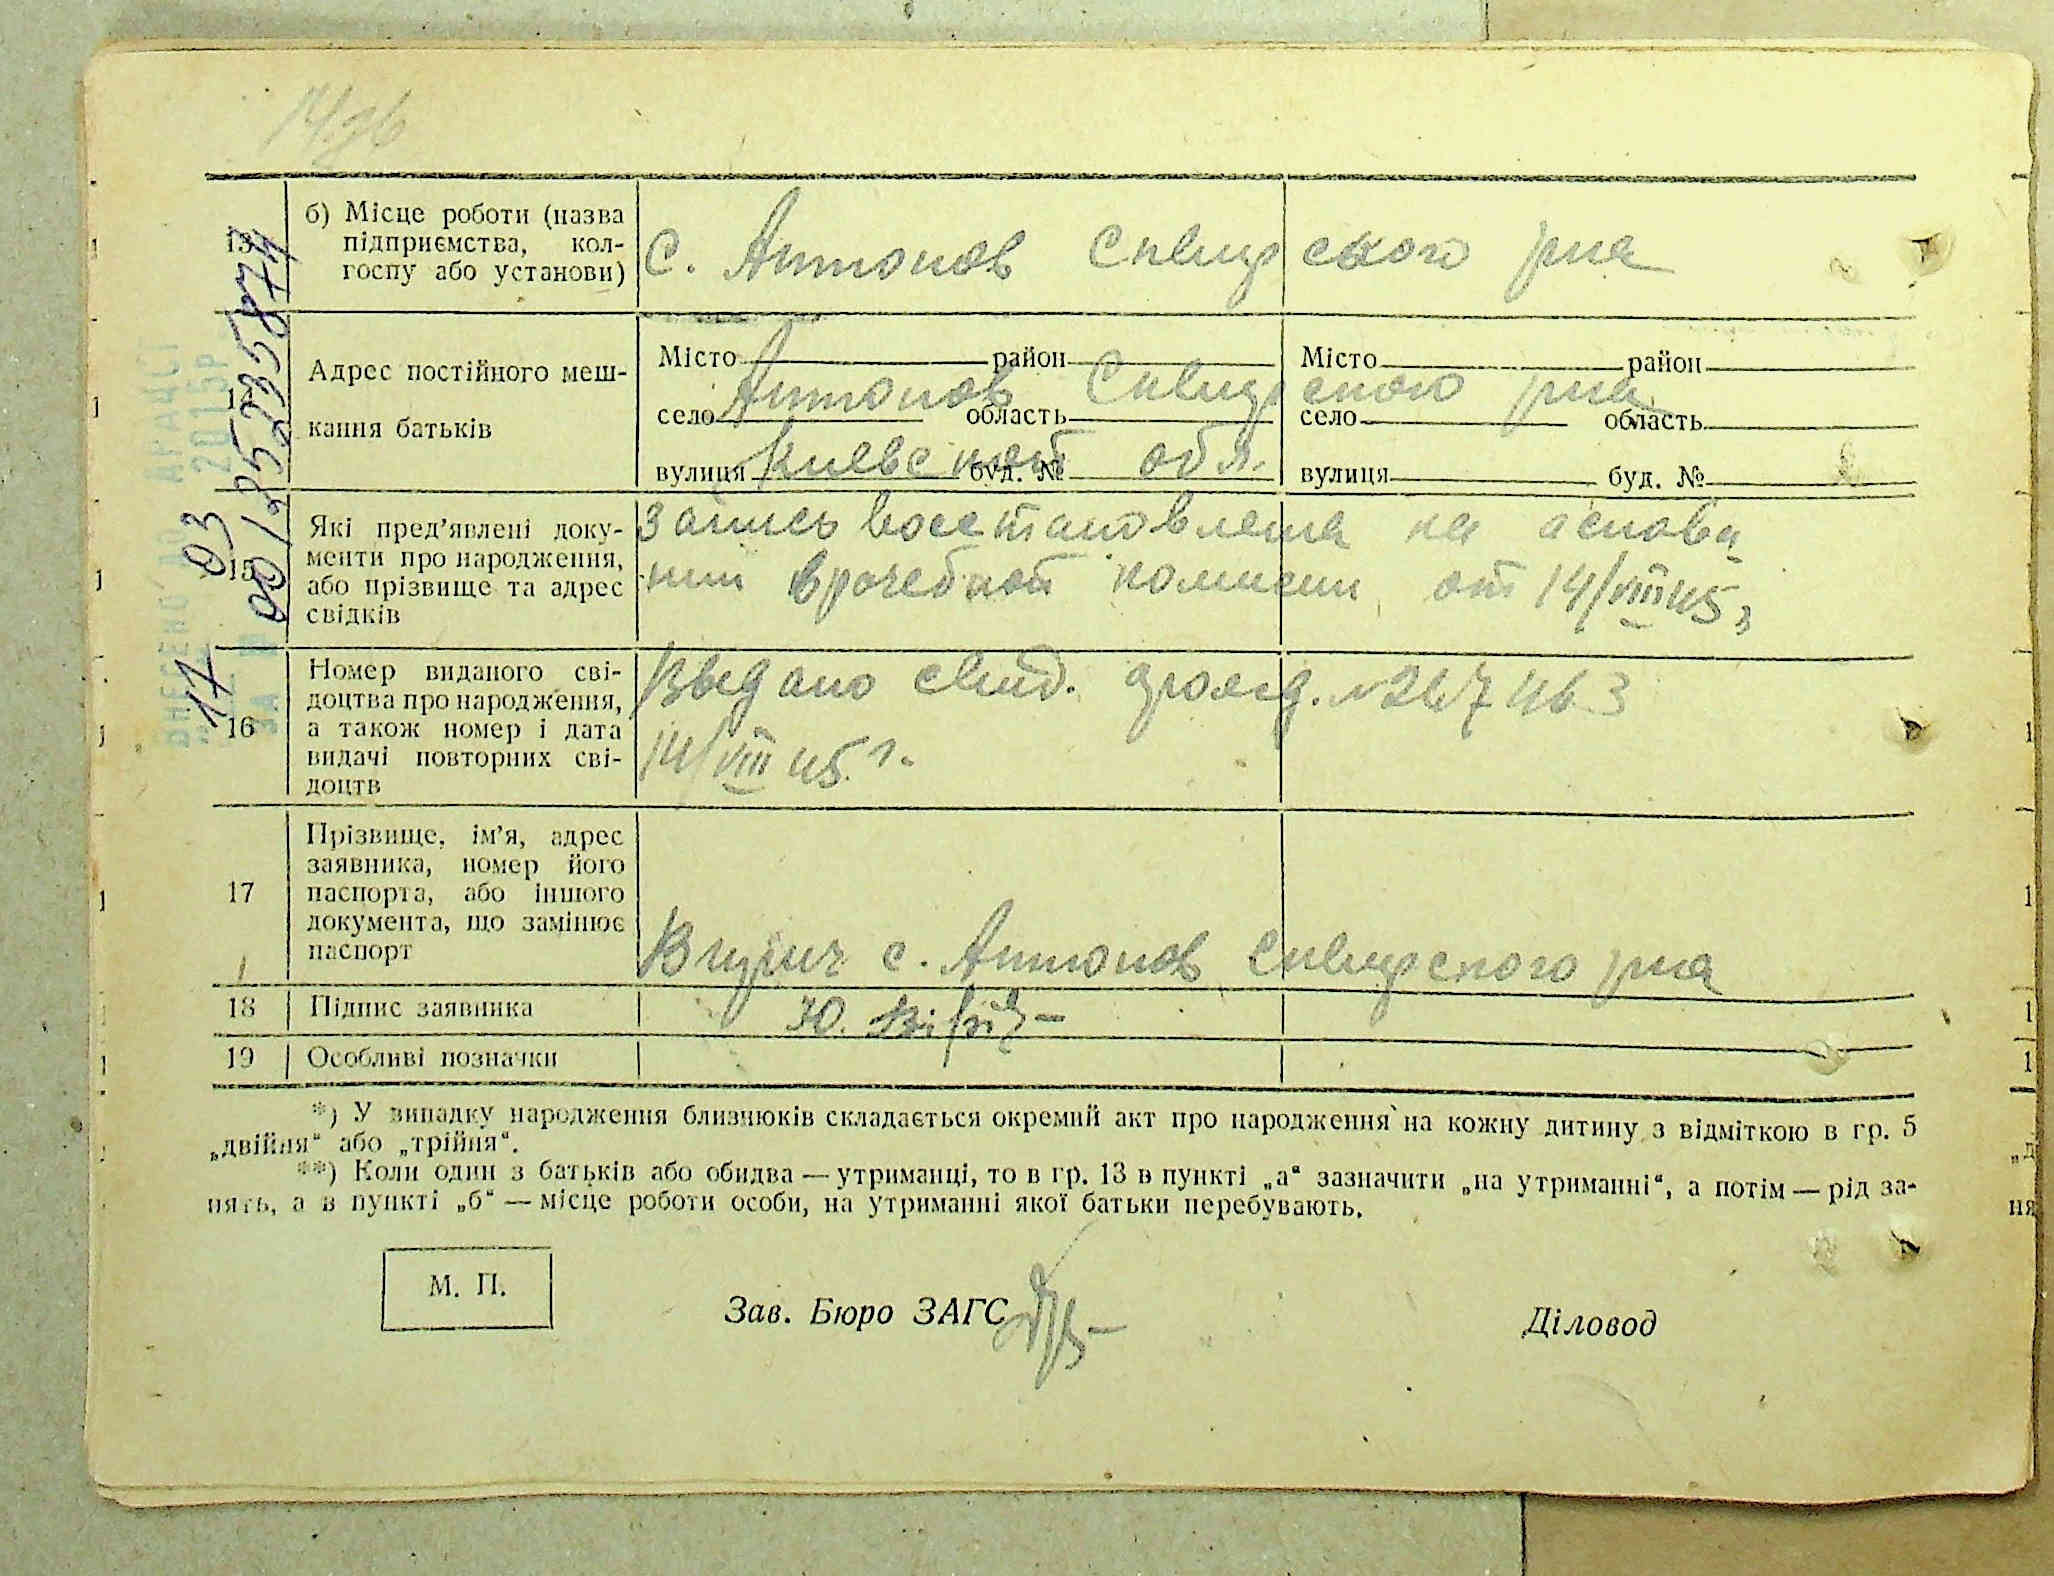 13
б) Місце роботи (назва
підприємства, кол-
госпу або установи)
с. Антонов Сквирского р-на
14
Адрес постійного меш-
кання батьків
Місто район Місто район
Антонов Сквирского р-на
село область село область
Киевской обл.
вулиця буд. № вулиця буд. №
15
Які пред’явлені доку-
менти про народження,
або прізвище та адрес
свідків
Запись восстановлена на основа
нии врачебной комисии от 14/VIII 45
16
Номер виданого сві-
доцтва про народження,
а також номер і дата
видачі повторних сві-
доцтв
Выдано свид.
14/VIII 45 г.
17
Прізвище, ім’я, адрес
заявника, номер його
паспорта, або іншого
документа, що замінює
паспорт
с. Антонов Сквирского р-на
18 Підпис заявника
Ю.
19 Особливі позначки
*) У випадку народження близнюків складається окремий акт про народження на кожну дитину з відміткою в гр. 5
„двійня“ або „трійня“.
**) Коли один з батьків або обидва — утриманці, то в гр. 13 в пункті „а“ зазначити „на утриманні“, а потім — рід за-
нять, а в пункті „б“ — місце роботи особи, на утриманні якої батьки перебувають.
М. П.
Зав. Бюро ЗАГС
Діловод